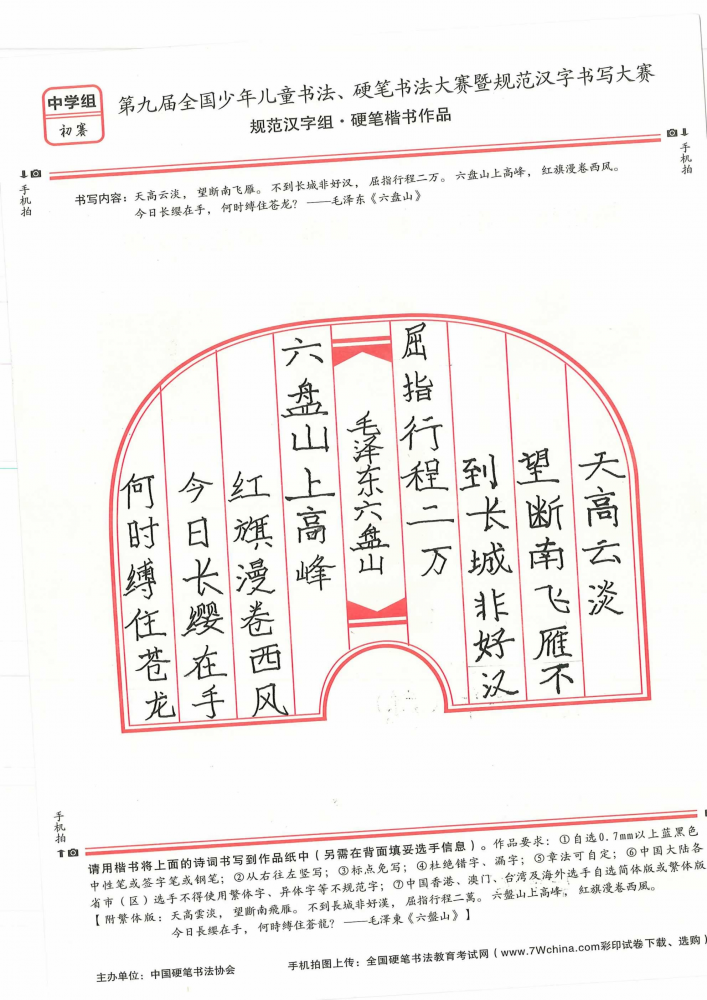 中学组
初赛
第九届全国少年儿童书法、硬笔书法大赛暨规范汉字书写大赛
规范汉字组·硬笔楷书作品
手机拍
手机拍
书写内容：天高云淡，望断南飞雁。不到长城非好汉，屈指行程二万。六盘山上高峰，红旗漫卷西风。
今日长缨在手，何时缚住苍龙？——毛泽东《六盘山》
天高云淡
望断南飞雁不
到长城非好汉
屈指行程二万
毛泽东六盘山
六盘山上高峰
红旗漫卷西风
今日长缨在手
何时缚住苍龙
手机拍
请用楷书将上面的诗词书写到作品纸中（另需在背面填妥选手信息）。作品要求：①自选0.7mm以上蓝黑色
中性笔或签字笔或钢笔；②从右往左竖写；③标点免写；④杜绝错字、漏字；⑤章法可自定；⑥中国大陆各
省市（区）选手不得使用繁体字、异体字等不规范字；⑦中国香港、澳门、台湾及海外选手自选简体版或繁体版
【附繁体版：天高雲淡，望斷南飛雁。不到長城非好漢，屈指行程二萬。六盤山上高峰，紅旗漫卷西風。
今日長纓在手，何時縛住蒼龍？——毛澤東《六盤山》】
主办单位：中国硬笔书法协会
手机拍图上传：全国硬笔书法教育考试网（www.7Wchina.com彩印试卷下载、选购）